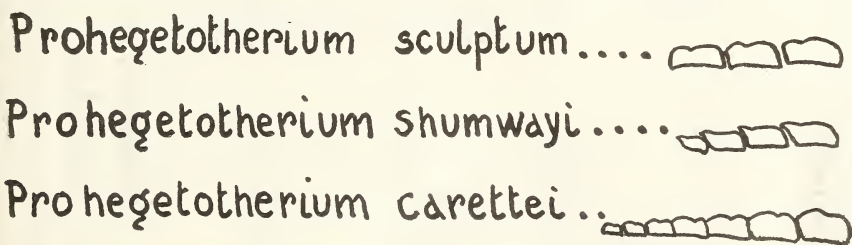 Prohegetotherium sculptum....
Prohegetotherium shumwayi....
Prohegetotherium carettei..